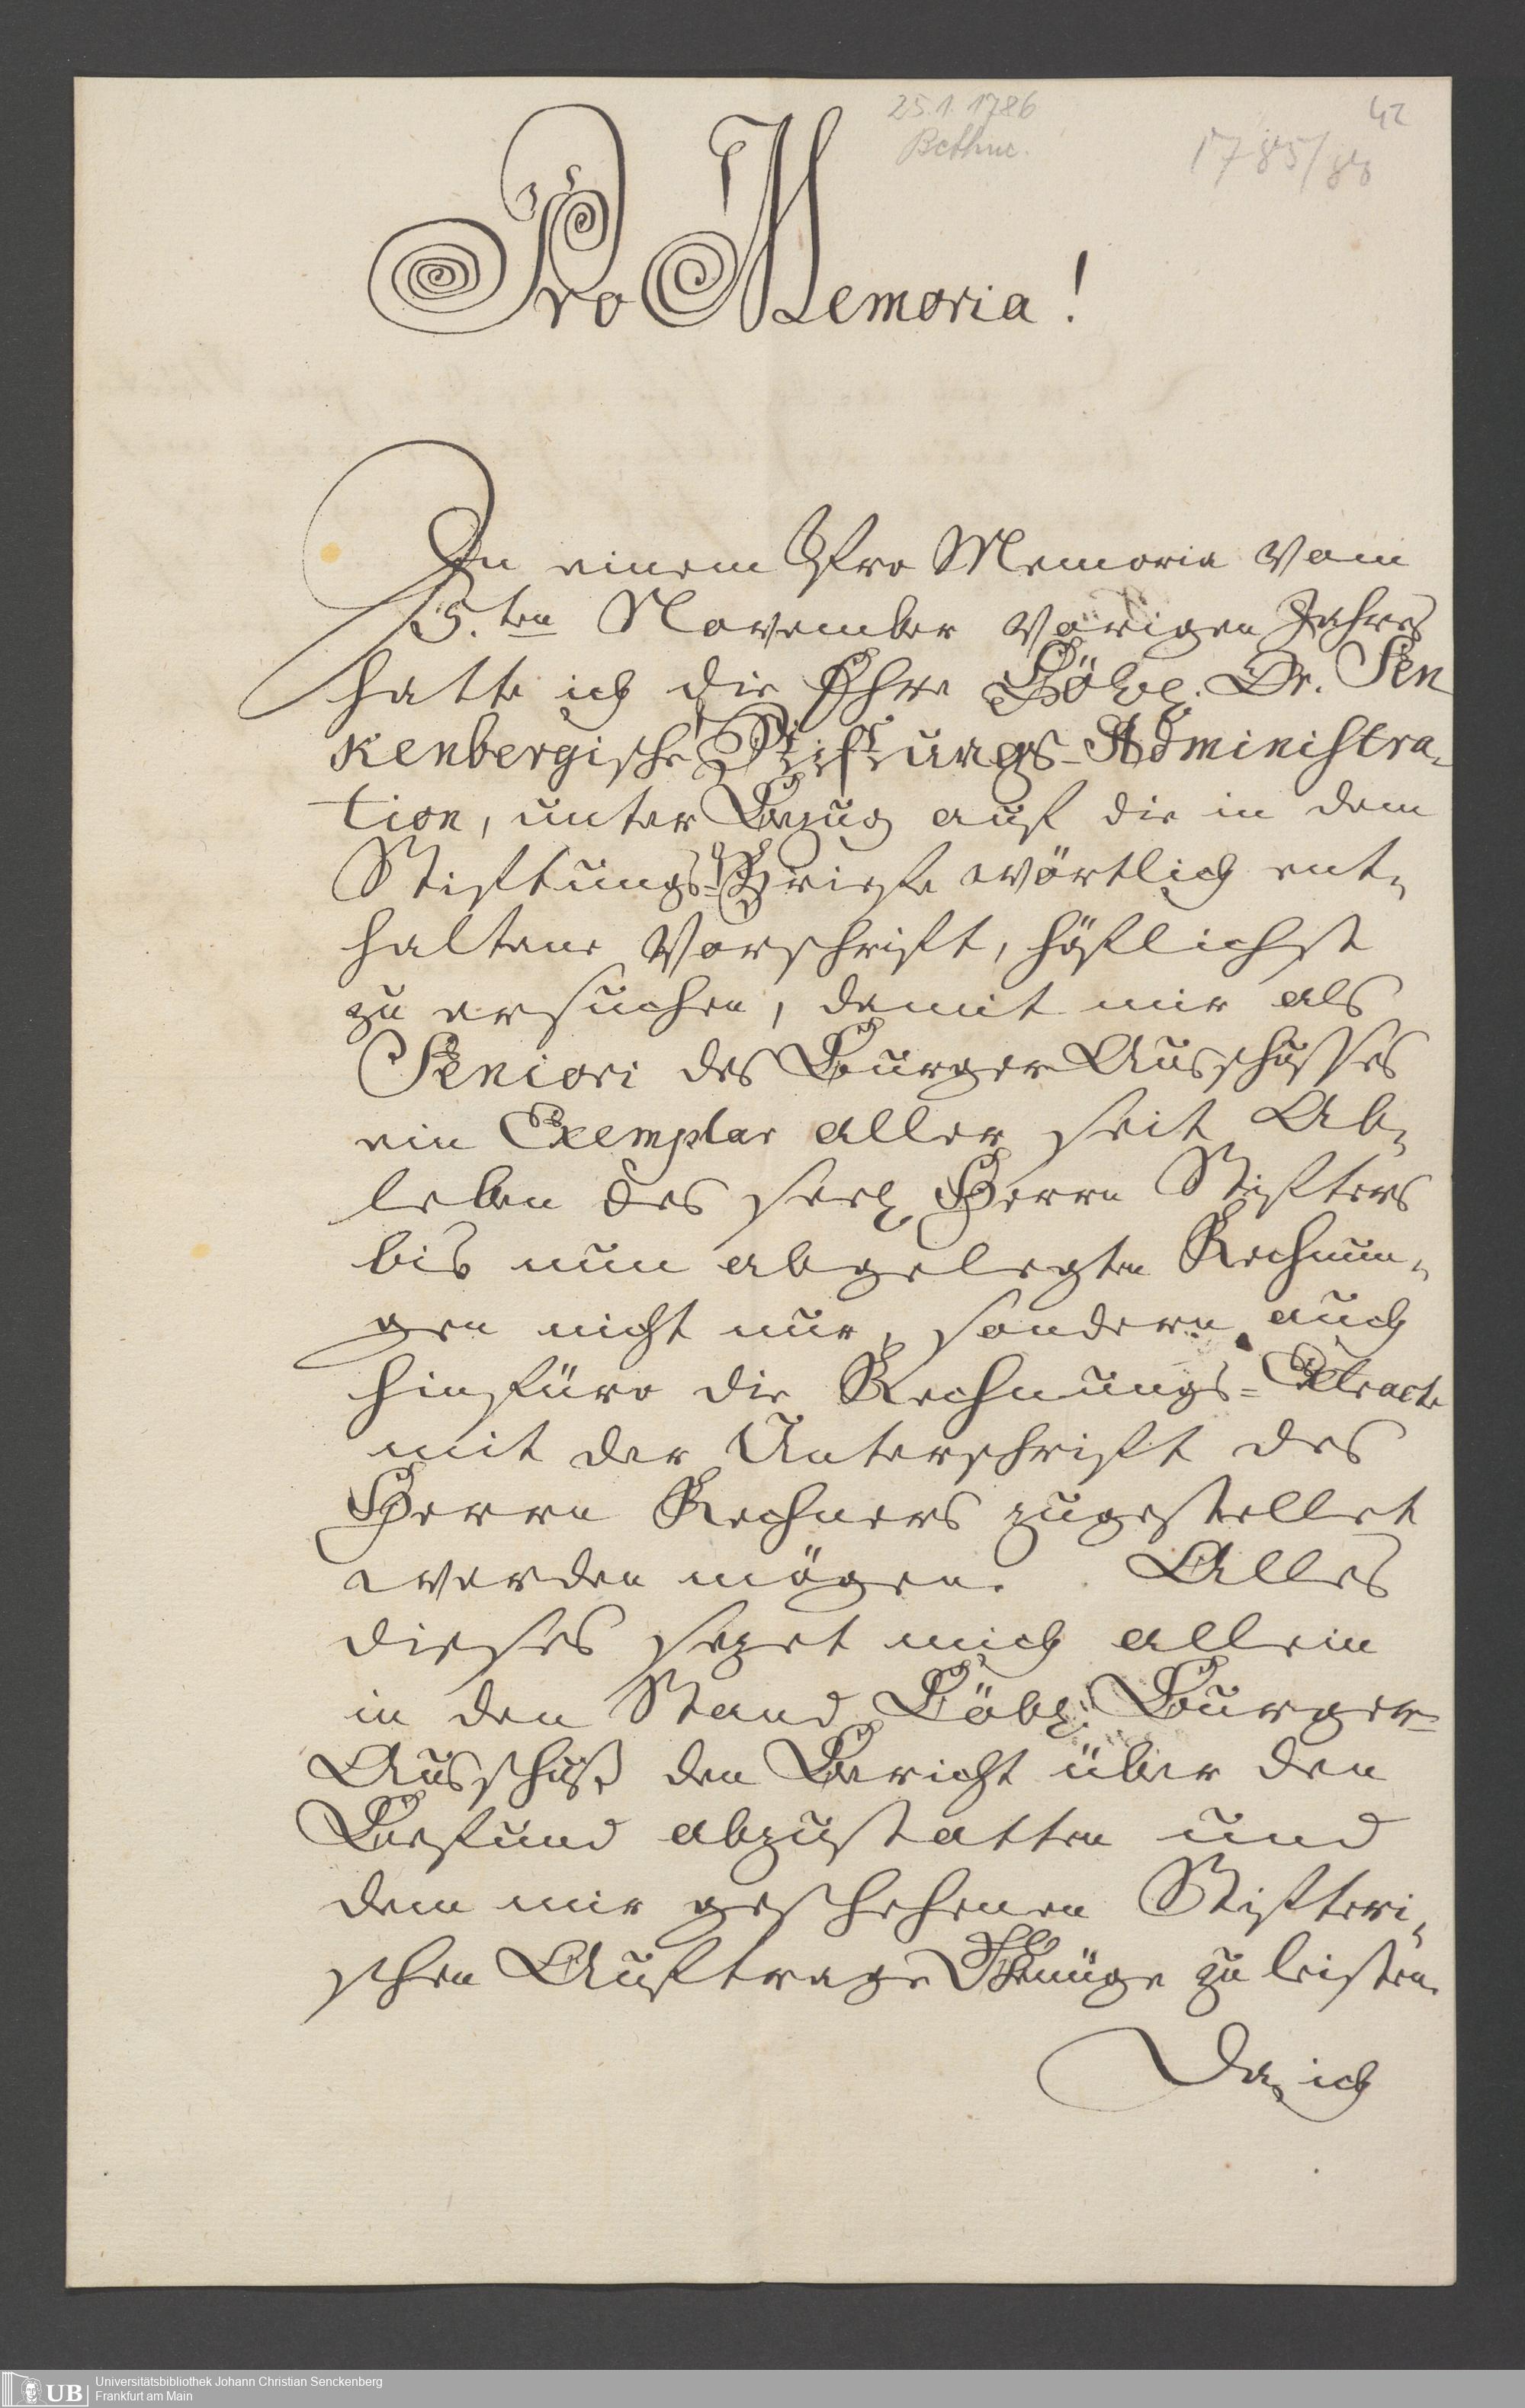 25.1.1786
Bethm.
42
1785/86
Pro Memoria!
In einem Pro Memoria vom
15.ten November vorigen Jahrs
hatte ich die Ehre Löbl. Dr. Sen
kenbergische Stiftungs-Administra-
tion, unter Bezug auf die in dem
Stiftungs-Briefe wörtlich ent-
haltene Vorschrift, höflichst
zu ersuchen, damit mir als
Seniori des Burger Ausschusses
ein Exemplar aller seit Ab-
leben des seel. Herrn Stifters
bis nun abgelegten Rechnun-
gen nicht nur, sondern auch
hinführo die Rechnungs-Extracte
mit der Unterschrift des
Herrn Rechners zugestellet
werden mögen. Alles
dieses sezet mich allein
in den Stand Löbl. Burger-
Ausschuß den Bericht über den
Befund abzustatten und
dem mir geschehenen Stifteri-
schen Auftrage Genüge zu leisten.
Da ich
UB
Universitätsbibliothek Johann Christian Senckenberg
Frankfurt am Main